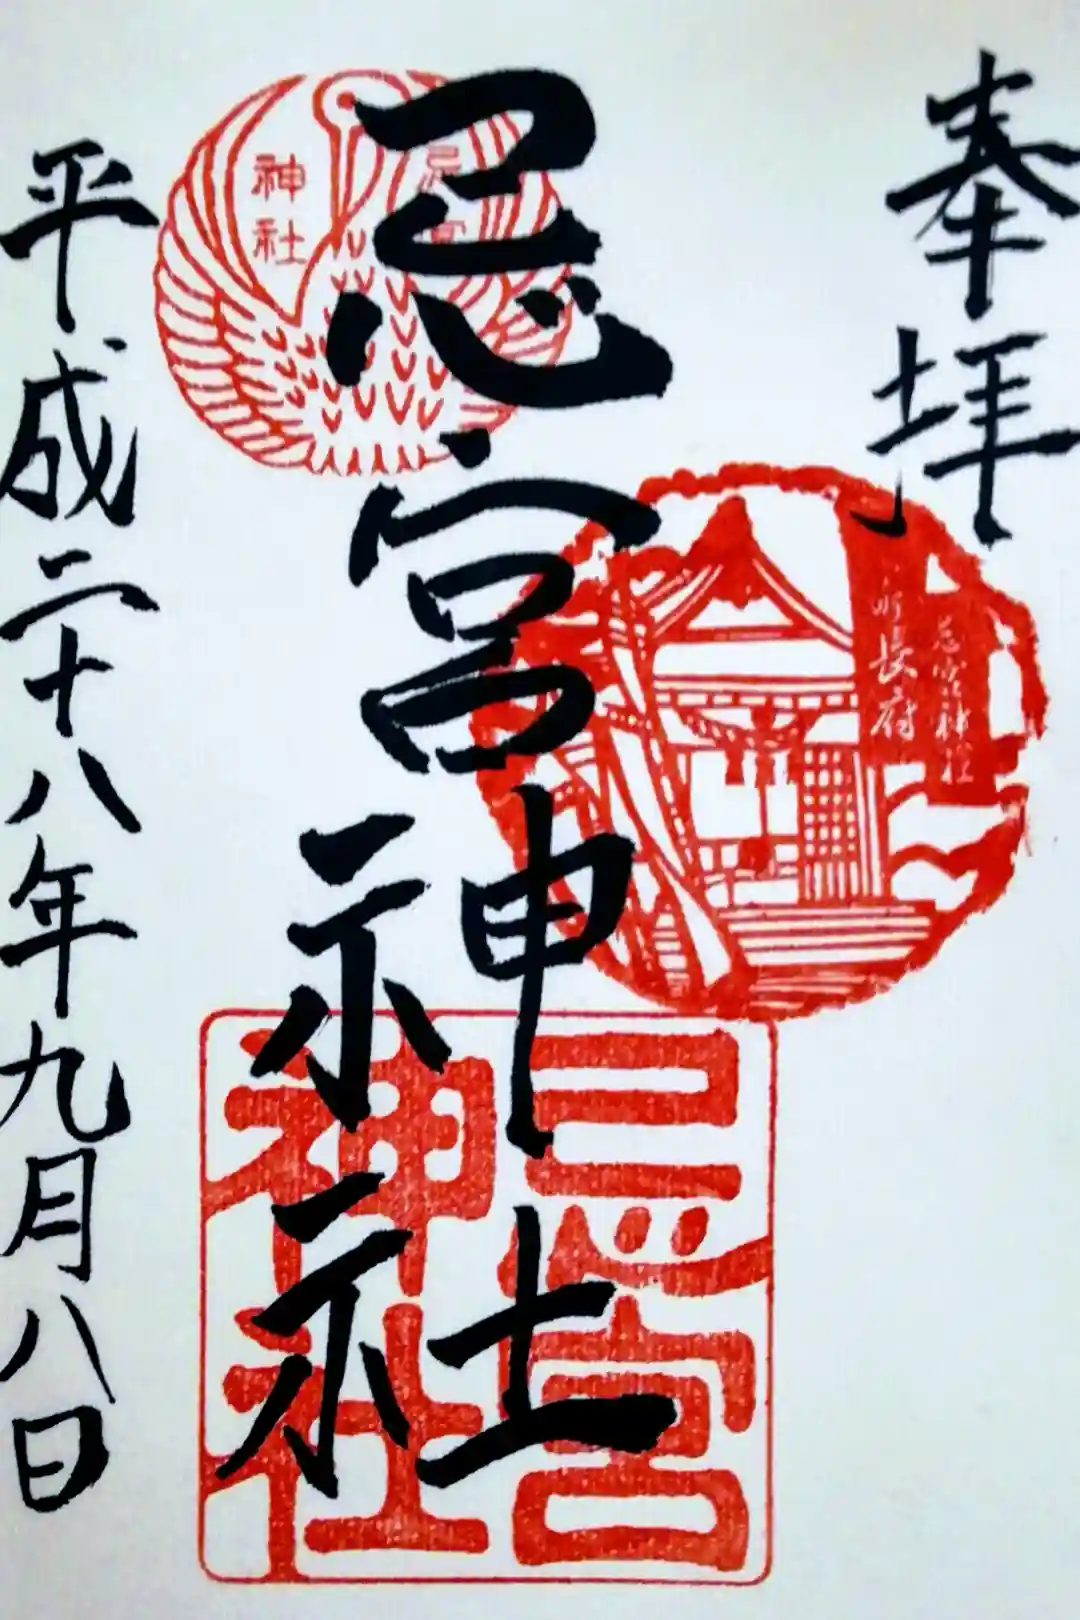 奉拝
忌宮神社
長府
忌宮神社
忌宮
神社
忌宮
神社
平成二十八年九月八日